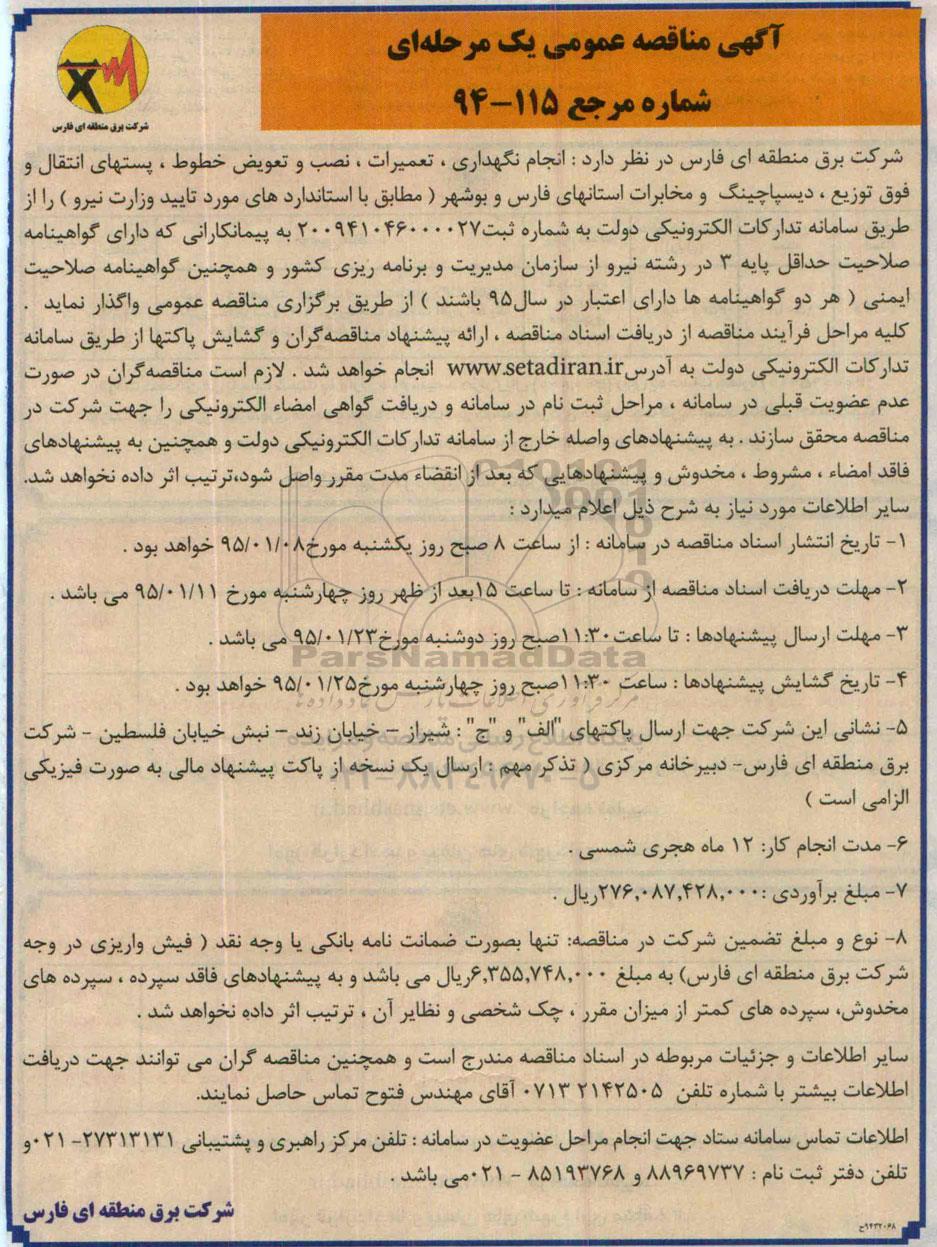 آگهی مناقصه عمومی یک مرحله‌ای
شماره مرجع ۱۱۵-۹۴
شرکت برق منطقه ای فارس
شرکت برق منطقه ای فارس در نظر دارد : انجام نگهداری ، تعمیرات ، نصب و تعویض خطوط ، پستهای انتقال و
فوق توزیع ، دیسپاچینگ و مخابرات استانهای فارس و بوشهر ( مطابق با استاندارد های مورد تایید وزارت نیرو ) را از
طریق سامانه تدارکات الکترونیکی دولت به شماره ثبت۲۰۰۹۴۱۰۴۶۰۰۰۰۲۷ به پیمانکارانی که دارای گواهینامه
صلاحیت حداقل پایه ۳ در رشته نیرو از سازمان مدیریت و برنامه ریزی کشور و همچنین گواهینامه صلاحیت
ایمنی ( هر دو گواهینامه ها دارای اعتبار در سال۹۵ باشند ) از طریق برگزاری مناقصه عمومی واگذار نماید .
کلیه مراحل فرآیند مناقصه از دریافت اسناد مناقصه ، ارائه پیشنهاد مناقصه‌گران و گشایش پاکتها از طریق سامانه
تدارکات الکترونیکی دولت به آدرس www.setadiran.ir انجام خواهد شد . لازم است مناقصه‌گران در صورت
عدم عضویت قبلی در سامانه ، مراحل ثبت نام در سامانه و دریافت گواهی امضاء الکترونیکی را جهت شرکت در
مناقصه محقق سازند . به پیشنهادهای واصله خارج از سامانه تدارکات الکترونیکی دولت و همچنین به پیشنهادهای
فاقد امضاء ، مشروط ، مخدوش و پیشنهادهایی که بعد از انقضاء مدت مقرر واصل شود،ترتیب اثر داده نخواهد شد.
سایر اطلاعات مورد نیاز به شرح ذیل اعلام میدارد :
۱- تاریخ انتشار اسناد مناقصه در سامانه : از ساعت ۸ صبح روز یکشنبه مورخ۹۵/۰۱/۰۸ خواهد بود .
۲- مهلت دریافت اسناد مناقصه از سامانه : تا ساعت ۱۵بعد از ظهر روز چهارشنبه مورخ ۹۵/۰۱/۱۱ می باشد .
۳- مهلت ارسال پیشنهادها : تا ساعت۱۱:۳۰صبح روز دوشنبه مورخ۹۵/۰۱/۲۳ می باشد .
ParsNamadData
۴- تاریخ گشایش پیشنهادها : ساعت ۱۱:۳۰صبح روز چهارشنبه مورخ۹۵/۰۱/۲۵ خواهد بود .
۵- نشانی این شرکت جهت ارسال پاکتهای "الف" و "ج" : شیراز – خیابان زند – نبش خیابان فلسطین - شرکت
برق منطقه ای فارس- دبیرخانه مرکزی ( تذکر مهم : ارسال یک نسخه از پاکت پیشنهاد مالی به صورت فیزیکی
الزامی است )
۶- مدت انجام کار: ۱۲ ماه هجری شمسی .
۷- مبلغ برآوردی :۲۷۶,۰۸۷,۴۲۸,۰۰۰ریال .
۸- نوع و مبلغ تضمین شرکت در مناقصه: تنها بصورت ضمانت نامه بانکی یا وجه نقد ( فیش واریزی در وجه
شرکت برق منطقه ای فارس) به مبلغ ۶,۳۵۵,۷۴۸,۰۰۰ریال می باشد و به پیشنهادهای فاقد سپرده ، سپرده های
مخدوش، سپرده های کمتر از میزان مقرر ، چک شخصی و نظایر آن ، ترتیب اثر داده نخواهد شد .
سایر اطلاعات و جزئیات مربوطه در اسناد مناقصه مندرج است و همچنین مناقصه گران می توانند جهت دریافت
اطلاعات بیشتر با شماره تلفن ۲۱۴۲۵۰۵ ۰۷۱۳ آقای مهندس فتوح تماس حاصل نمایند.
اطلاعات تماس سامانه ستاد جهت انجام مراحل عضویت در سامانه : تلفن مرکز راهبری و پشتیبانی ۲۷۳۱۳۱۳۱-۰۲۱و
تلفن دفتر ثبت نام : ۸۸۹۶۹۷۳۷ و ۸۵۱۹۳۷۶۸ - ۰۲۱می باشد .
شرکت برق منطقه ای فارس
۹۴۳۲۰۶۸ح